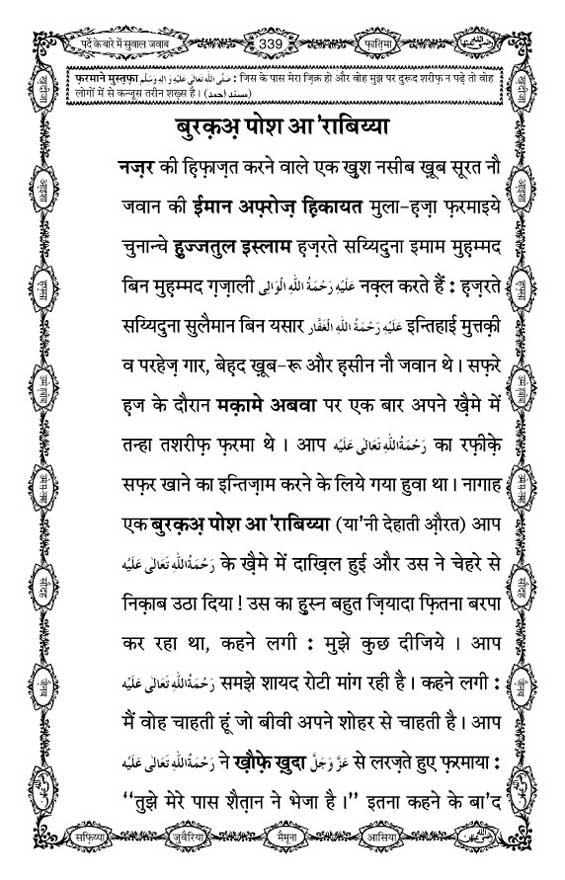 पर्दे के बारे में सुवाल जवाब
339
फ़ातिमा
फ़रमाने मुस्तफ़ा صَلَّى اللّٰهُ تَعَالٰى عَلَيْهِ وَاٰلِهٖ وَسَلَّم : जिस के पास मेरा ज़िक्र हो और वोह मुझ पर दुरूद शरीफ़ न पढ़े तो वोह
लोगों में से कन्जूस तरीन शख़्स है। (مسند احمد)
बुरक़अ़ पोश आ'राबिय्या
नज़र की हि़फ़ाज़त करने वाले एक खुश नसीब ख़ूब सूरत नौ
जवान की ईमान अफ़्रोज़ ह़िकायत मुला-ह़ज़ा फ़रमाइये
चुनान्चे हुज्जतुल इस्लाम ह़ज़रते सय्यिदुना इमाम मुह़म्मद
बिन मुह़म्मद ग़ज़ाली عَلَيْهِ رَحْمَةُ اللهِ الْوَالِى नक़्ल करते हैं : ह़ज़रते
सय्यिदुना सुलैमान बिन यसार عَلَيْهِ رَحْمَةُ اللهِ الْغَفَّار इन्तिहाई मुत्तक़ी
व परहेज़ गार, बेह़द ख़ूब-रू और ह़सीन नौ जवान थे। सफ़रे
ह़ज के दौरान मक़ामे अबवा पर एक बार अपने ख़ैमे में
तन्हा तशरीफ़ फ़रमा थे। आप رَحْمَةُ اللهِ تَعَالٰى عَلَيْه का रफ़ीक़े
सफ़र खाने का इन्तिज़ाम करने के लिये गया हुवा था। नागाह
एक बुरक़अ़ पोश आ'राबिय्या (या'नी देहाती औ़रत) आप
رَحْمَةُ اللهِ تَعَالٰى عَلَيْه के ख़ैमे में दाख़िल हुई और उस ने चेहरे से
निक़ाब उठा दिया ! उस का हुस्न बहुत ज़ियादा फ़ितना बरपा
कर रहा था, कहने लगी : मुझे कुछ दीजिये। आप
رَحْمَةُ اللهِ تَعَالٰى عَلَيْه समझे शायद रोटी मांग रही है। कहने लगी :
मैं वोह चाहती हूं जो बीवी अपने शोहर से चाहती है। आप
رَحْمَةُ اللهِ تَعَالٰى عَلَيْه ने ख़ौफ़े ख़ुदा عَزَّوَجَلَّ से लरज़ते हुए फ़रमाया :
“तुझे मेरे पास शैत़ान ने भेजा है।” इतना कहने के बा'द
सफ़िय्या
जुवैरिया
मैमूना
आसिया